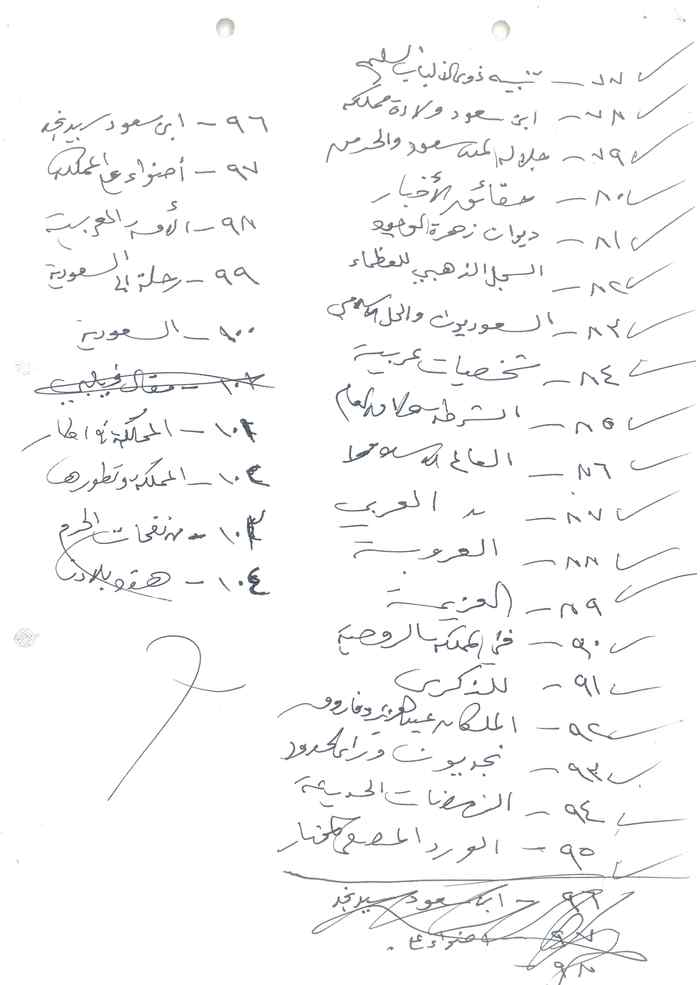 ٧٧ - تنبيه ذوي الألباب السليمة
٧٨ - ابن سعود ولادة مملكة
٧٩ - جلالة الملك سعود والحرمين
٨٠ - حقائق الأخبار
٨١ - ديوان زهرة الوجود
٨٢ - السجل الذهبي للعظماء
٨٣ - السعوديون والحل الإسلامي
٨٤ - شخصيات عربية
٨٥ - الشرطة والأمن العام
٨٦ - العالم الإسلامي
٨٧ - = العربي
٨٨ - العروبة
٨٩ - العزيمة
٩٠ - في المملكة الروحية
٩١ - للذكرى
٩٢ - الملكان عبدالعزيز وفاروق
٩٣ - نجديون وراء الحدود
٩٤ - النهضات الحديثة
٩٥ - الورد المصفى المختار
٩٦ - ابن سعود سيد نجد
٩٧ أضواء على
٩٨
٩٦ - ابن سعود سيد نجد
٩٧ - أضواء على المملكة
٩٨ - الأمة العربية
٩٩ - رحلة إلى السعودية
١٠٠ - السعودية
١٠٢ - مقال فيلبي
١٠٢ - المملكة في إطار
١٠٤ - المملكة وتطورها
١٠٣ - من نفحات الحرم
١٠٤ - هذه بلادنا